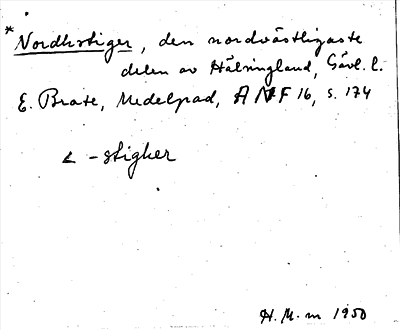 *Nordhstiger, den nordvästligaste
delen av Hälsingland, Gävl. l.
E. Brate, Medelpad, ANF 16, s. 174
< -stigher
H. M-m 1950